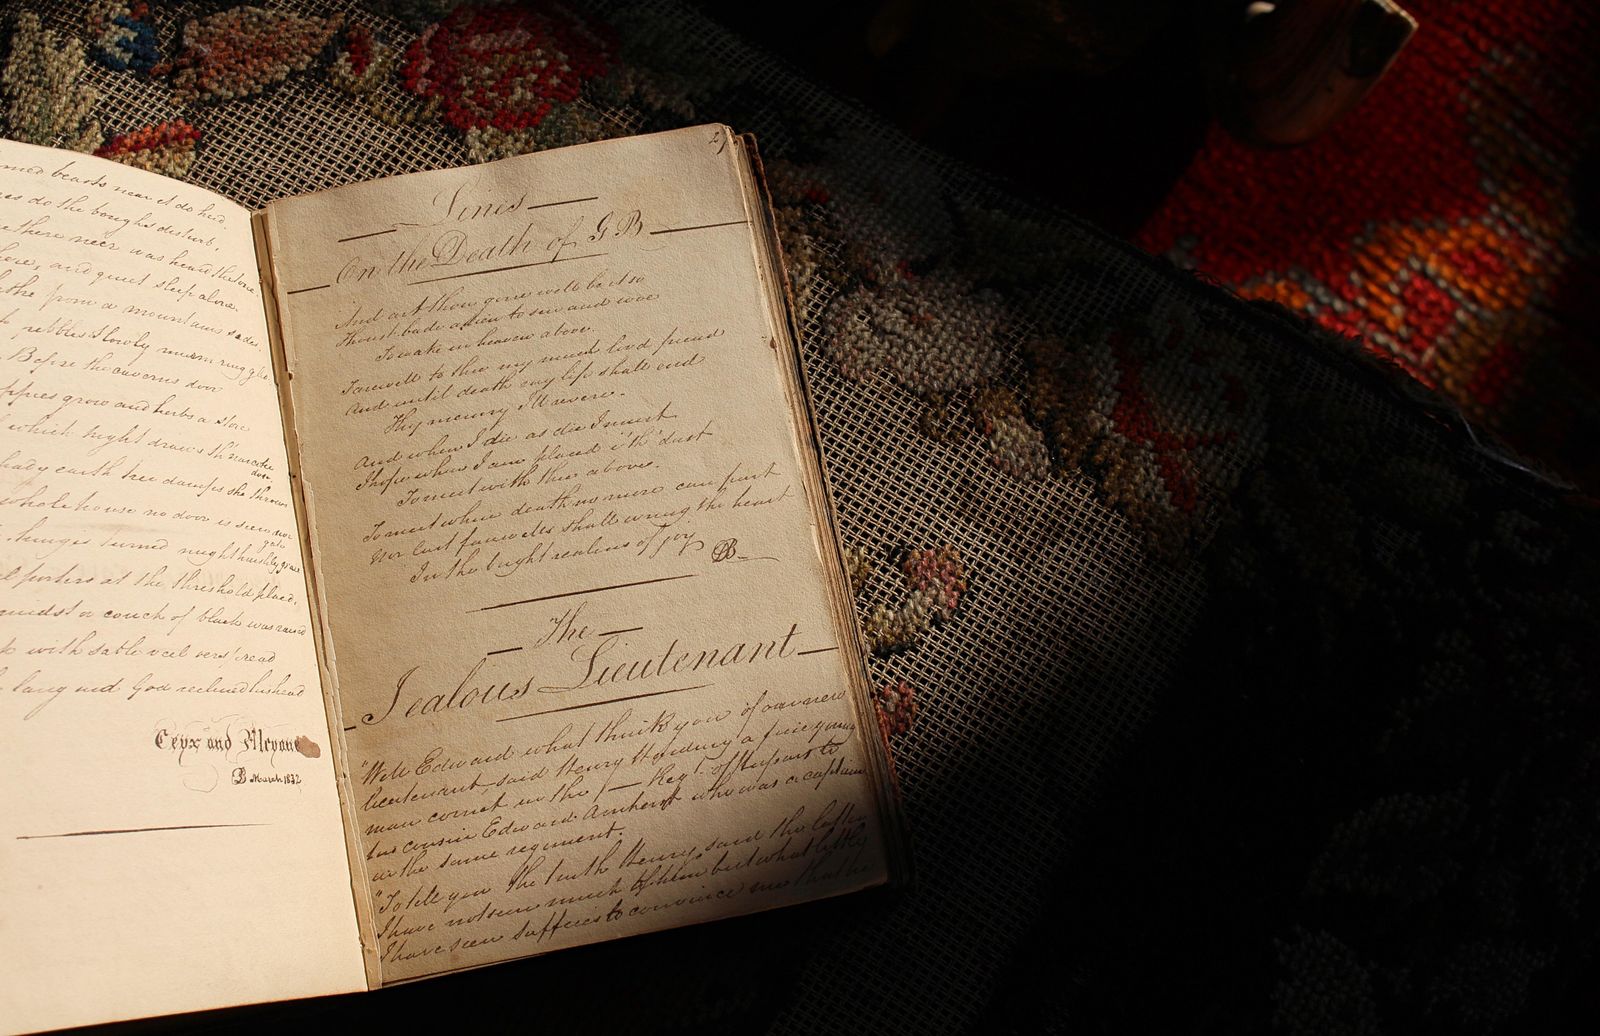 med beasts near it do heed
es do the boughs disturb.
e there neer was heard the tone.
here, and quiet sleep alone.
the from a mountains side
pebbles slowly murmuring glide
Before the caverns door
ppies grow and herbs a store
which night draws th' narcotic
dow
hady earth tree damps she throws
whole house no door is seen nor
gate
hinges turned might harshly grate
l porters at the threshold placed.
midst a couch of black was raised
with sable veil oers'pread
languid God reclined his head
Ceyx and Alcyone
B March 1832
27
Lines
On the Death of G B
And art thou gone well be it so
Thou'st bade adieu to sin and woe
To wake in heaven above.
Farewell to thee my much lov'd friend
And until death my life shall end
Thy memory I'll revere.
And when I die as die I must
I hope when I am placed i'th' dust
To meet with thee above.
To meet where death no more can part
Nor last farewells shall wring the heart
In the bright realms of joy
B
The
Jealous Lieutenant
"Well Edward what think you of our new
lieutenant said Henry Harding a fine young
man cornet in the — Regt. of Hussars to
his cousin Edward Amherst who was a captain
in the same regiment.
"To tell you the truth Henry, said the latter
I have not seen much of him but what little
I have seen suffices to convince me that he